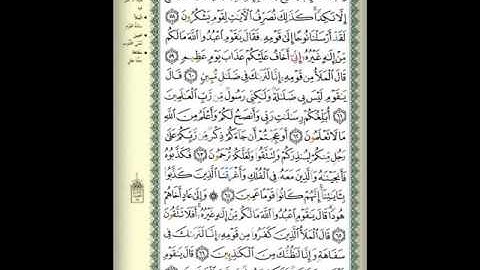 إِلَّا نَكِدًا كَذَٰلِكَ نُصَرِّفُ الْآيَاتِ لِقَوْمٍ يَشْكُرُونَ ٥٨
لَقَدْ أَرْسَلْنَا نُوحًا إِلَىٰ قَوْمِهِ فَقَالَ يَا قَوْمِ اعْبُدُوا اللَّهَ مَا لَكُم
مِّنْ إِلَٰهٍ غَيْرُهُ إِنِّي أَخَافُ عَلَيْكُمْ عَذَابَ يَوْمٍ عَظِيمٍ ٥٩
قَالَ الْمَلَأُ مِن قَوْمِهِ إِنَّا لَنَرَاكَ فِي ضَلَالٍ مُّبِينٍ ٦٠ قَالَ
يَا قَوْمِ لَيْسَ بِي ضَلَالَةٌ وَلَٰكِنِّي رَسُولٌ مِّن رَّبِّ الْعَالَمِينَ
٦١ أُبَلِّغُكُمْ رِسَالَاتِ رَبِّي وَأَنصَحُ لَكُمْ وَأَعْلَمُ مِنَ اللَّهِ
مَا لَا تَعْلَمُونَ ٦٢ أَوَعَجِبْتُمْ أَن جَاءَكُمْ ذِكْرٌ مِّن رَّبِّكُمْ عَلَىٰ
رَجُلٍ مِّنكُمْ لِيُنذِرَكُمْ وَلِتَتَّقُوا وَلَعَلَّكُمْ تُرْحَمُونَ ٦٣ فَكَذَّبُوهُ
فَأَنجَيْنَاهُ وَالَّذِينَ مَعَهُ فِي الْفُلْكِ وَأَغْرَقْنَا الَّذِينَ كَذَّبُوا
بِآيَاتِنَا إِنَّهُمْ كَانُوا قَوْمًا عَمِينَ ٦٤ وَإِلَىٰ عَادٍ أَخَاهُمْ
هُودًا قَالَ يَا قَوْمِ اعْبُدُوا اللَّهَ مَا لَكُم مِّنْ إِلَٰهٍ غَيْرُهُ أَفَلَا تَتَّقُونَ
٦٥ قَالَ الْمَلَأُ الَّذِينَ كَفَرُوا مِن قَوْمِهِ إِنَّا لَنَرَاكَ فِي
سَفَاهَةٍ وَإِنَّا لَنَظُنُّكَ مِنَ الْكَاذِبِينَ ٦٦ قَالَ يَا قَوْمِ